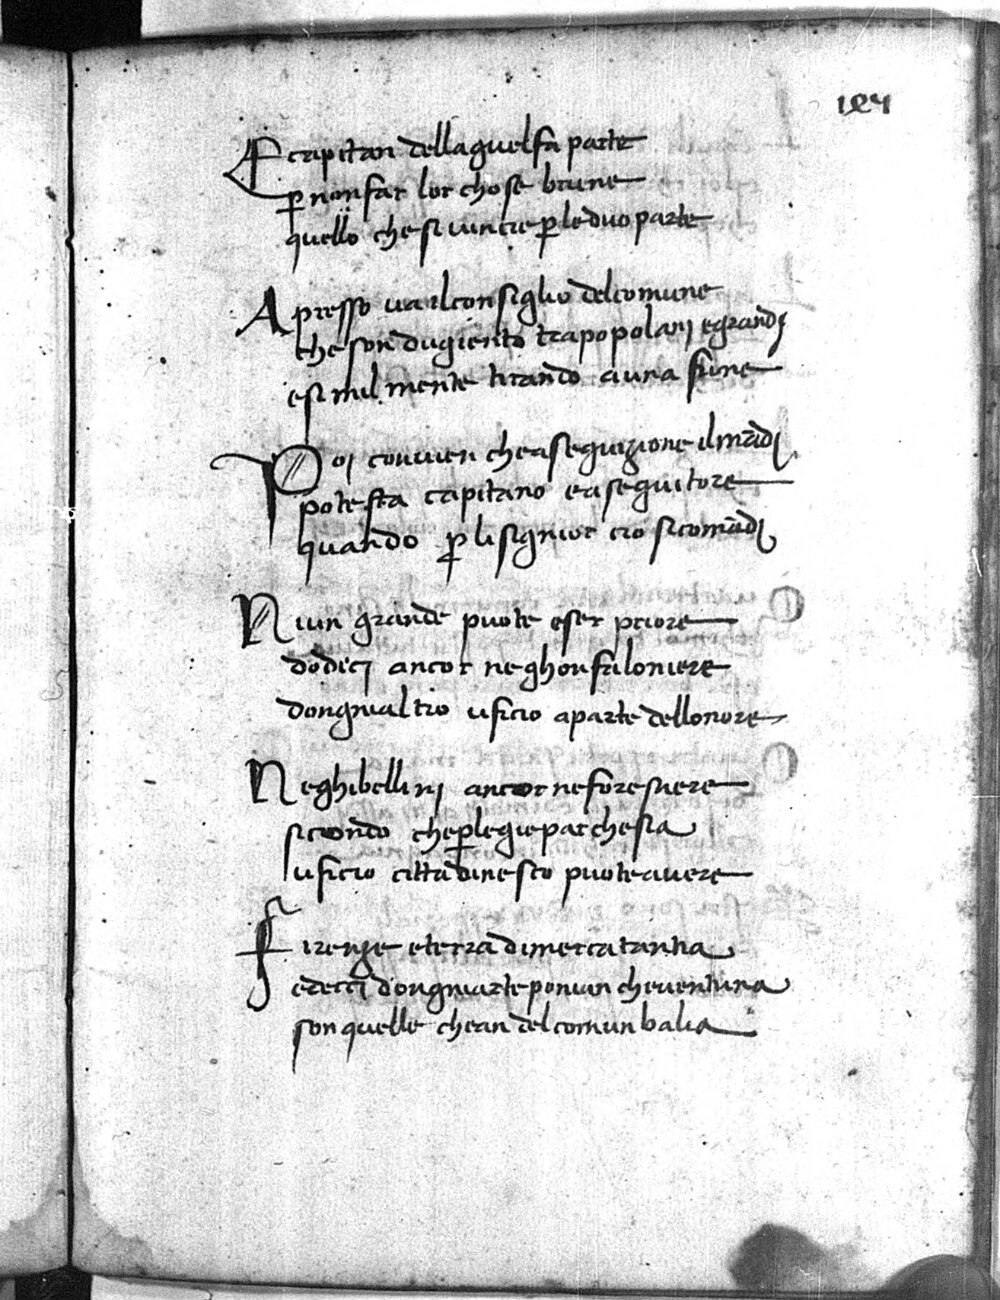 124
E capitan dellaguelfa parte
p̲ non far lor chose brune
quello che si vincie p̲ le duo parte
A presso va ilconsiglio delcomune
che son dugiento trapopolanj egrandj
esimilmente tirando auna fune
Poi convien chease guizione il mãdj
potesta capitano easeguitore
quando p̲ li signior cio sicomãdj
Niun grande puote eser priore
dodicj ancor ne ghonfaloniere
dongnialtro uficio aparte dellonore
Neghibellinj ancor ne foresstiere
sicondo chep̲ legie par chesia
uficio cittadinesco puote avere
Firenze eterra dimercatantia
edecci dongniarte ponian cheventuna
son quelle chean delcomun balia